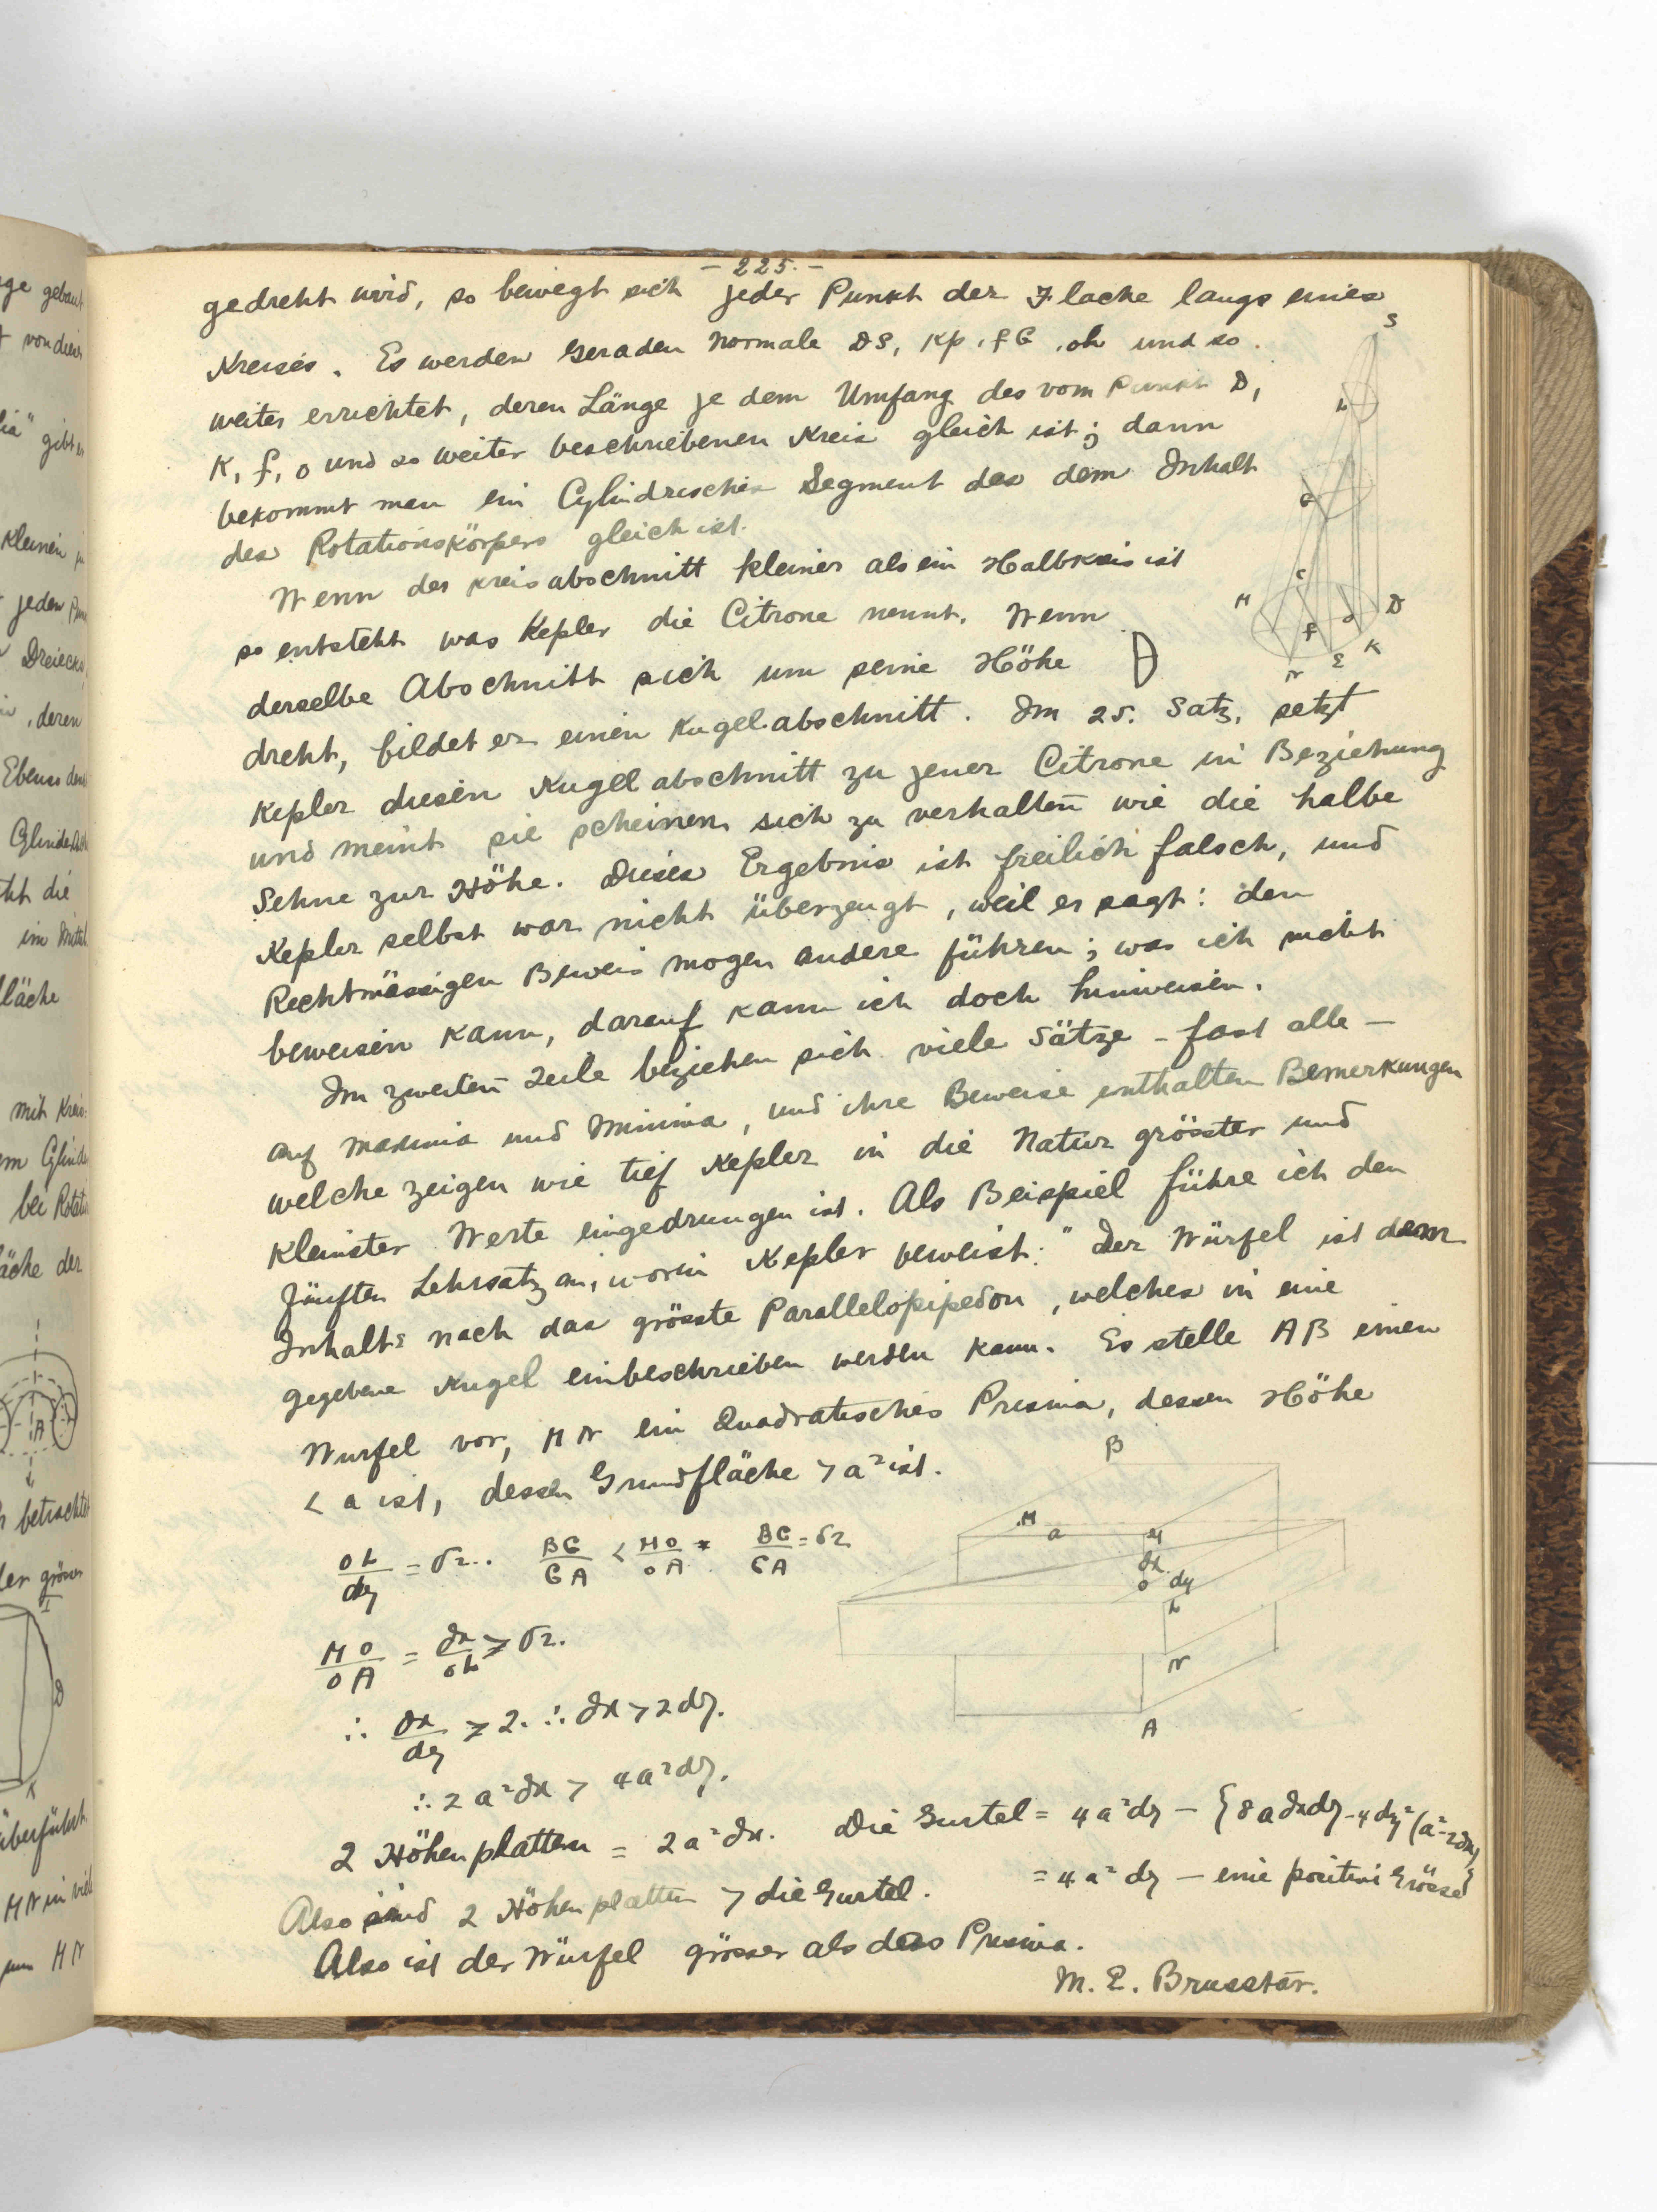 - 225. -
gedreht wird, so bewegt sich jeder Punkt der Flache langs eines
Kreises. Es werden Geraden normale DS, Kp, fG, oh und so
weiter errichtet, deren Länge je dem Umfang des vom Punkt D,
K, f, o und so weiter beschriebenen Kreis gleich ist; dann
bekommt man ein Cylindrisches Segment das dem Inhalt
des Rotationskörpers gleich ist.
Wenn der Kreisabschnitt kleiner als ein Halbkreis ist
so entsteht was Kepler die Citrone nennt. Wenn
derselbe Abschnitt sich um seine Höhe
dreht, bildet er einen Kugelabschnitt. Im 25. Satz, setzt
Kepler diesen Kugelabschnitt zu jener Citrone in Beziehung
und meint sie scheinen sich zu verhalten wie die halbe
Sehne zur Höhe. Dieses Ergebnis ist freilich falsch, und
Kepler selbst war nicht überzeugt, weil er sagt: den
Rechtmässigen Beweis mogen andere führen; was ich nicht
beweisen kann, darauf kann ich doch hinweisen.
Im zweiten Teile beziehen sich viele Sätze - fast alle -
auf maxima und Minima, und ihre Beweise enthalten Bemerkungen
welche zeigen wie tief Kepler in die Natur grösster und
kleinster Werte eingedrungen ist. Als Beispiel führe ich den
fünften Lehrsatz an, worin Kepler beweist: "Der Würfel ist dem
Inhalts nach das grösste Parallelopipedon, welches in eine
gegebene Kugel einbeschrieben werden kann. Es stelle AB einen
Wurfel vor, MN ein Quadratisches Prisma, dessen Höhe
< a ist, dessen Grundfläche > a² ist.
oL/dy = √2. BG/GA < MO/OA BG/GA = √2
MO/OA = ∂x/oL > √2.
∴ ∂x/dy > 2. ∴ ∂x > 2dy.
∴ 2a²∂x > 4a²dy.
2 Höhenplatten = 2a²∂x. Die Gurtel = 4a²dy - {8a∂xdy - 4dy²(a-2∂x)}
= 4a²dy - eine positive Grösse
Also sind 2 Höhenplatten > die Gurtel.
Also ist der Würfel grösser als das Prisma.
M. E. Brusstar.
S
L
G
C
M
D
f
d
K
E
N
B
M
a
∂x
o
dy
L
N
A